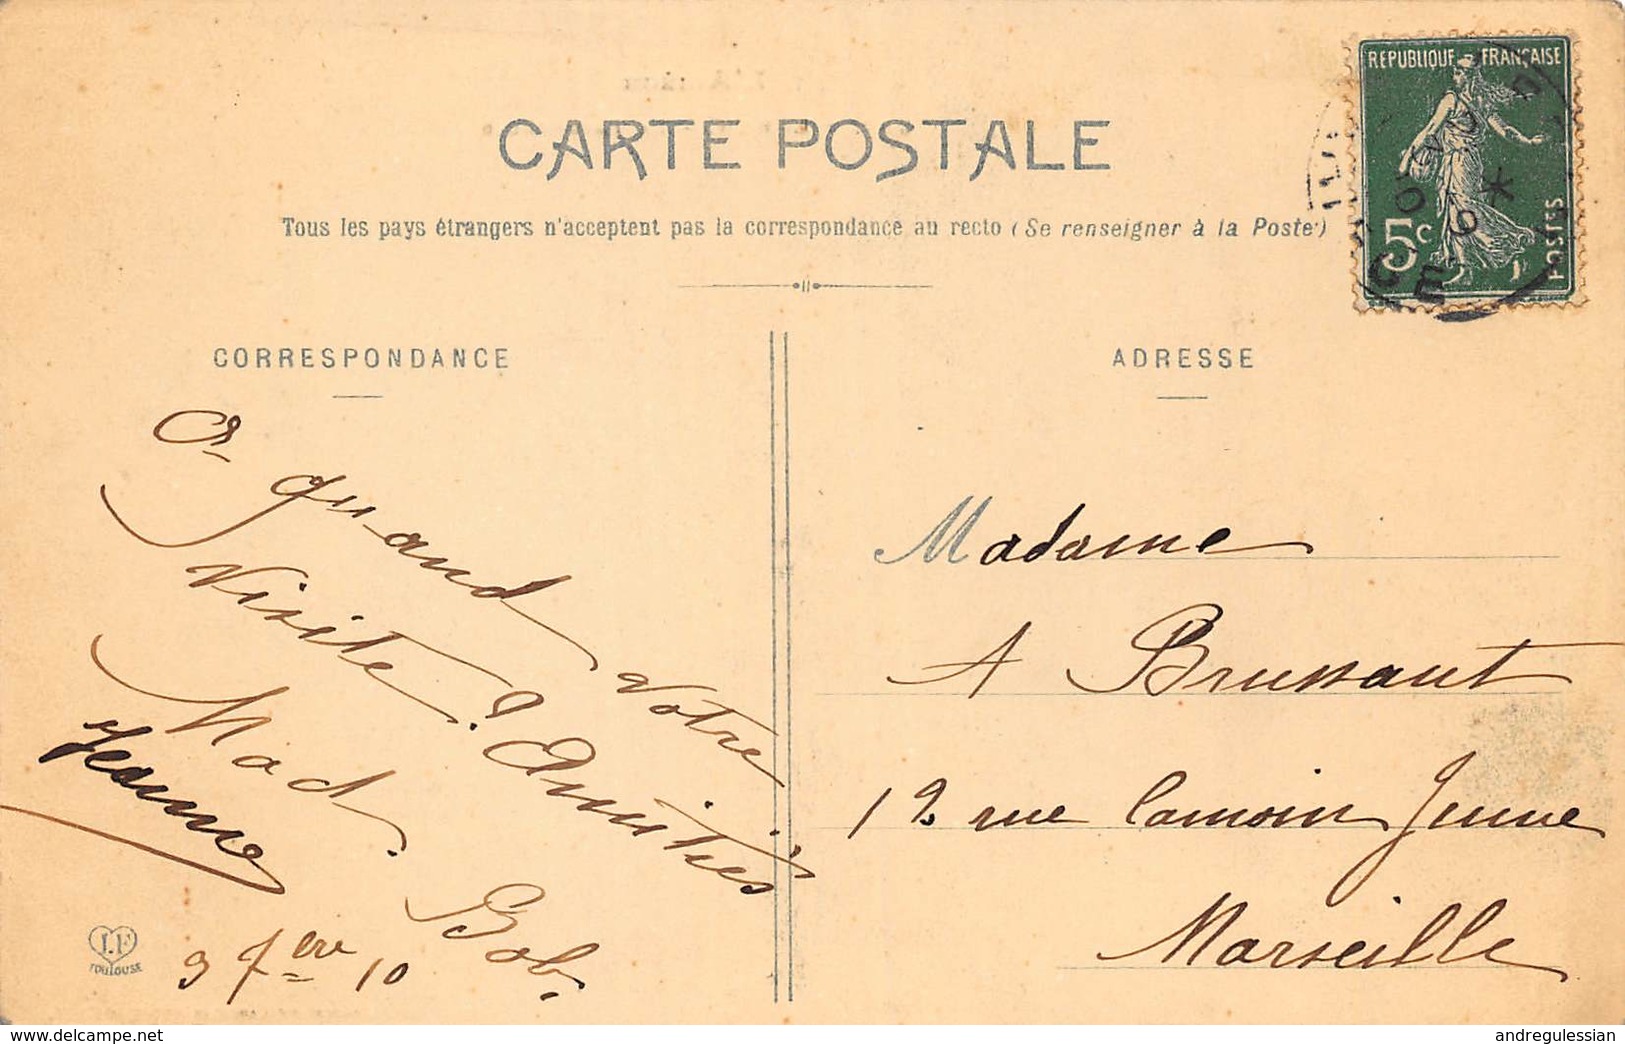 CARTE POSTALE
Tous les pays étrangers n'acceptent pas la correspondance au recto (Se renseigner à la Poste)
CORRESPONDANCE
ADRESSE
REPUBLIQUE FRANÇAISE
5c
POSTES
CE
A quand votre
Visite? Amitiés
Mad. Bob.
Jeanne
3 fer 10
Madame
A Brussaut
12 rue Camoin Jeune
Marseille
L.F
TOULOUSE
delcampe.net
andregulessian